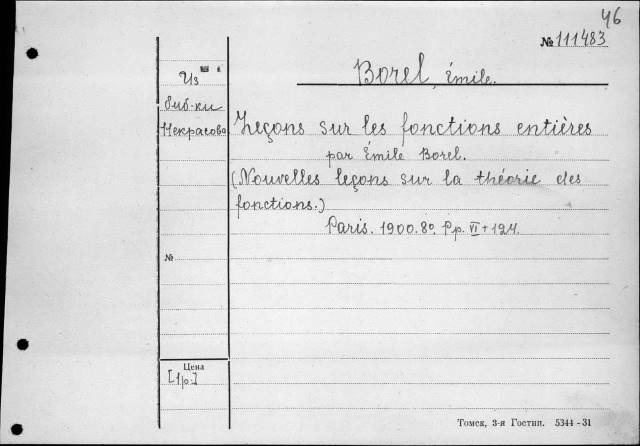 46
№ 111483
Borel, Émile.
Из
биб-ки
Некрасова
Leçons sur les fonctions entières
par Émile Borel.
(Nouvelles leçons sur la théorie des
fonctions.)
Paris. 1900. 8º. Pp. VI + 124.
№
Цена
[1р.]
Томск, 3-я Гостип. 5344-31